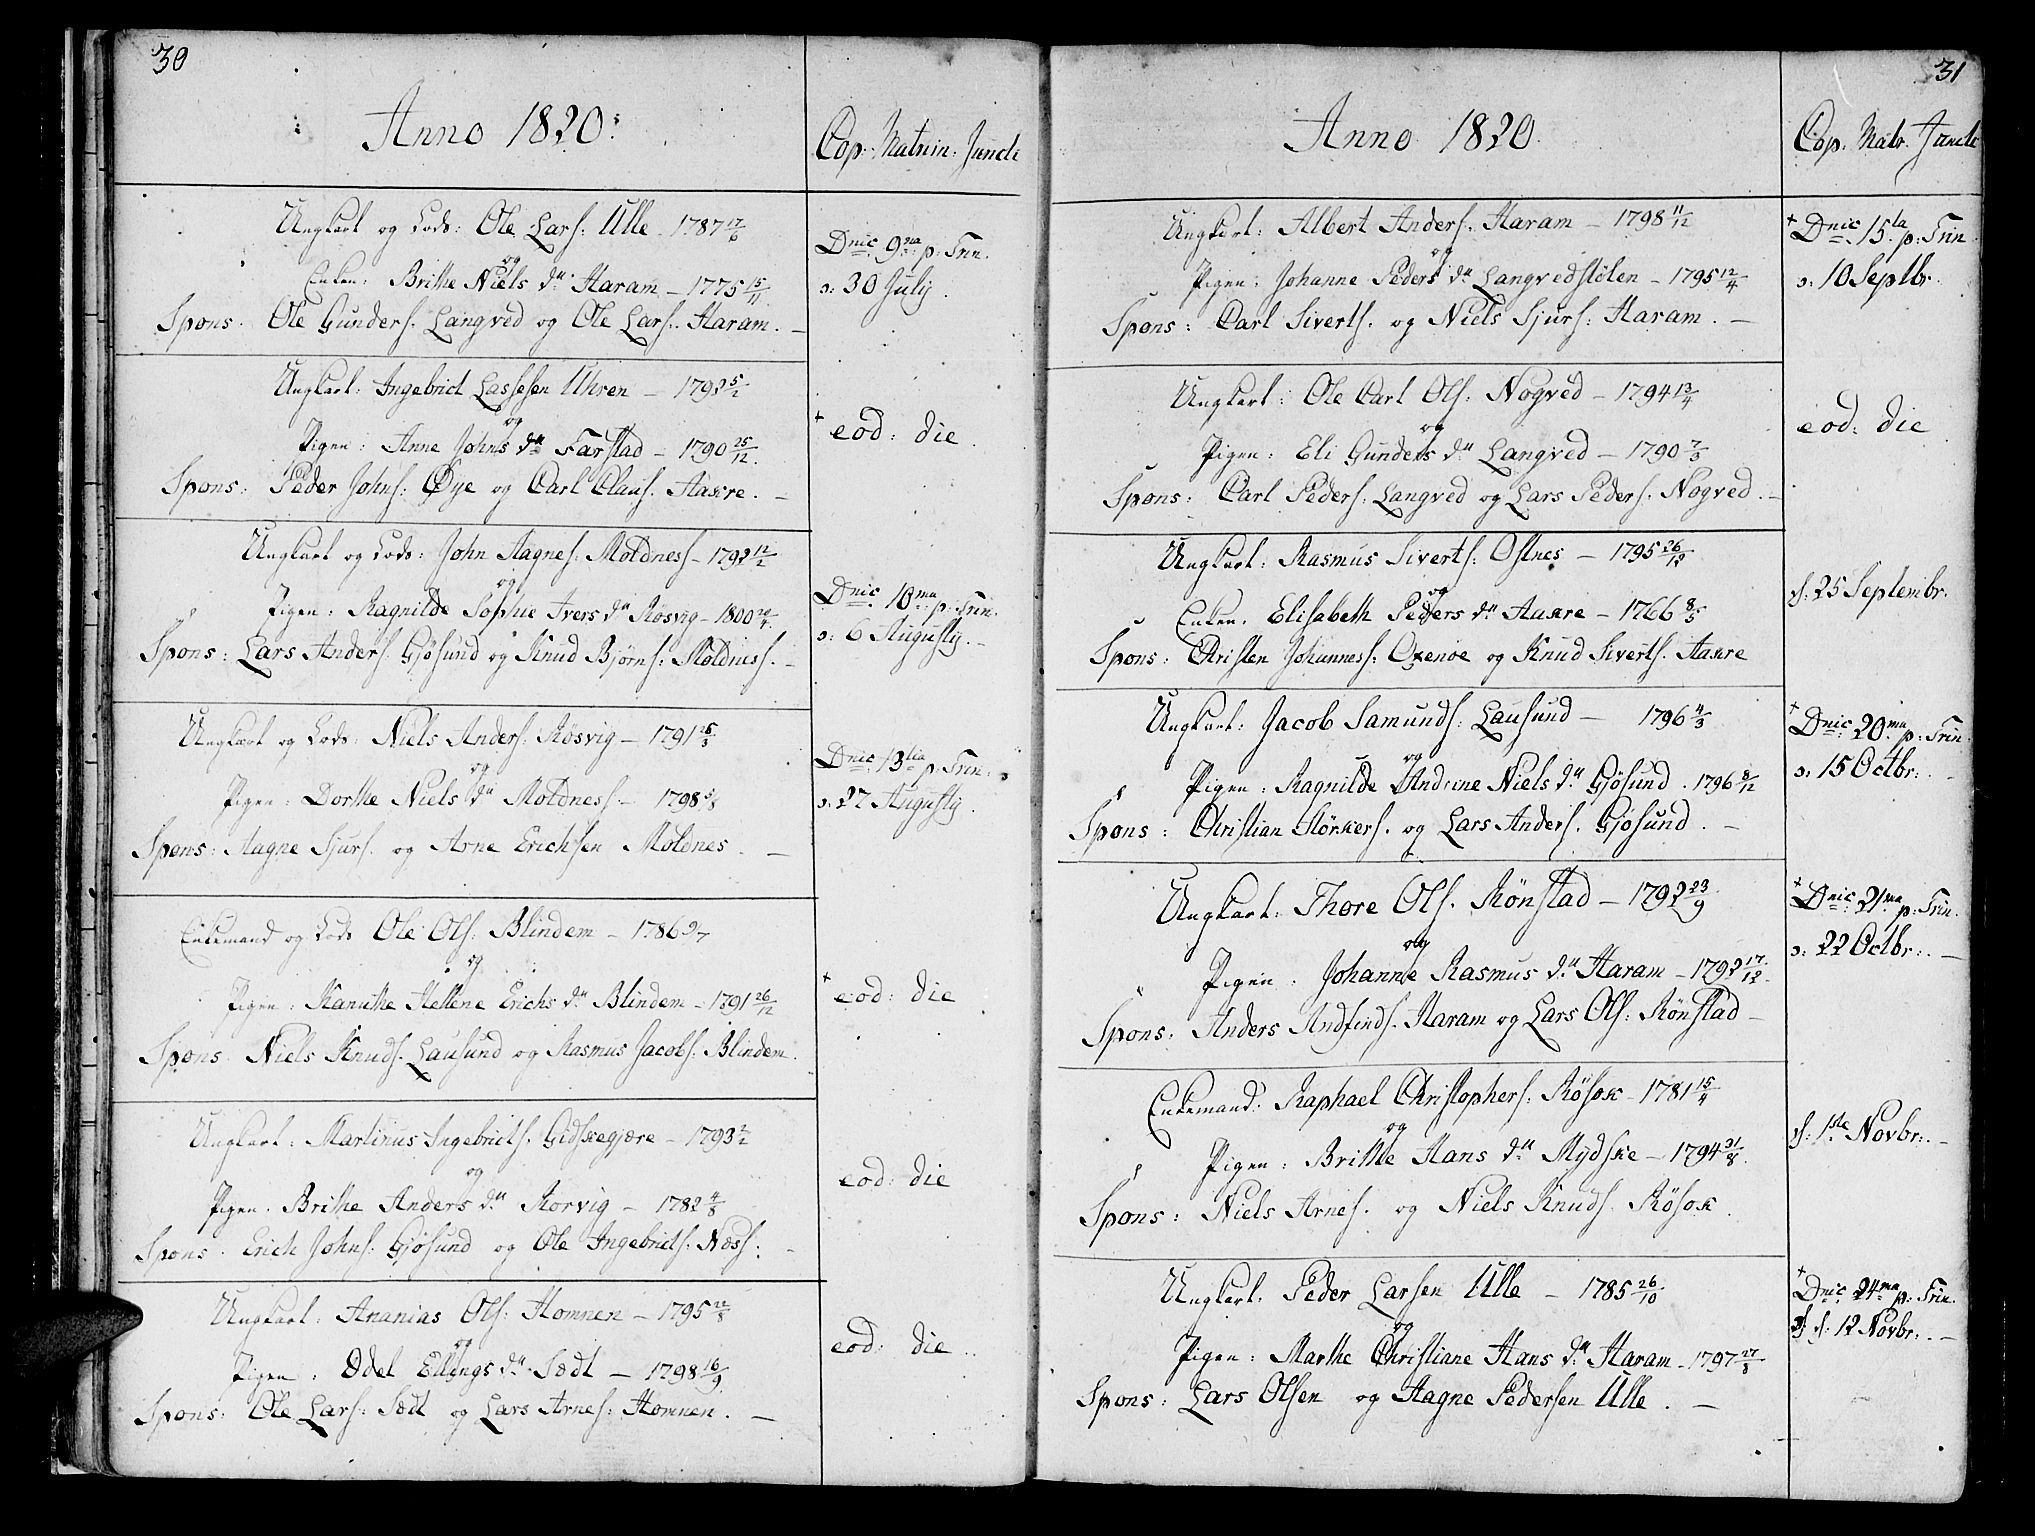 30
Anno 1820:
Cop: Matrim: Juncti
Ungkarl og Lods: Ole Lars: Ulle - 1787 17/6
og
Enken: Brithe Niels d:r Haram - 1775 15/11
Spons: Ole Gunders. Langved og Ole Lars: Haram. -
Dnic: 9na p: Trin:
o: 30 July.
Ungkarl: Ingebrict Lassesen Uhren - 1792 5/2
og
Pigen: Anne Johns d:r Farstad - 1790 25/12.
Spons: Peder Johns: Øye og Carl Claus. Aakre. -
+ eod: die
Ungkarl og Lods: John Aagnes. Moldness - 1792 12/2
og
Pigen: Ragnilde Sophie Ivers d:r Rosvig - 1800 20/4.
Spons: Lars Anders. Gjøsund og Knud Bjørns: Moldness. -
Dnic: 10ma p: Trin:
o: 6 Augusty. -
Ungkarl og Lods: Niels Anders: Røsvig - 1791 25/3
og
Pigen: Dorthe Niels d:r Moldness - 1798 5/8
Spons: Aagne Sjurs. og Arne Erichsen Moldnes. -
Dnic: 13tia p: Trin:
o: 27 Augusty.
Enkemand og Lods Ole Ols: Blindem - 1786 9/7
og
Pigen: Kanuthe Hellene Erichs d:r Blindem - 1791 26/12
Spons. Niels Knuds. Lausund og Rasmus Jacobs: Blindem.
+ eod: die
Ungkarl: Martinus Ingebricts. Gidskegjære - 1793 2/2
og
Pigen: Brithe Anders d:r Rorvig - 1782 4/8
Spons: Erich Johns: Gjøsund og Ole Ingebricts: Næss: -
eod: die
Ungkarl: Ananias Ols: Homnen - 1795 22/8
og
Pigen: Odel Ellings d:r Sædt - 1798 16/9
Spons: Ole Lars: Sædt og Lars Arnes: Homnen. -
eod: die
31
Anno 1820.
Cop: Matr. Juncti
Ungkarl: Albert Anders. Haram - 1798 11/12
og
Pigen: Johanne Peders d:r Langvedstølen - 1795 12/4
Spons: Carl Siverts. og Niels Sjurs: Haram. -
+ Dnic: 15ta p: Trin
o: 10 Septbr.
Ungkarl: Ole Carl Ols. Nogved - 1794 13/4
og
Pigen: Eli Gunders d:r Langved - 1790 7/3
Spons: Carl Peders. Langved og Lars Peders. Nogved. -
eod: die
Ungkarl: Rasmus Siverts: Ostnes - 1795 26/12
og
Enken. Elisabeth Peders d:r Aakre - 1766 8/5
Spons: Christen Johanness: Oxenøe og Knud Siverts. Aakre
d: 25 Septembr.
Ungkarl: Jacob Samunds: Lausund - 1796 4/3
og
Pigen: Ragnilde Andrine Niels d:r Gjøsund. 1796 8/12
Spons: Christian Størkers. og Lars Anders. Gjøsund. -
+ Dnic: 20ma p: Trin:
o: 15 Octbr: -
Ungkarl: Thore Ols. Rønstad - 1792 23/9
og
Pigen: Johanne Rasmus d:r Haram - 1792 17/12.
Spons: Anders Andfinds. Haram og Lars Ols: Rønstad -
+ Dnic: 21ma p: Trin.
o: 22 Octbr: -
Enkemand: Raphael Christophers: Røsok - 1781 15/4
og
Pigen: Brithe Hans d:r Mydske - 1794 31/8.
Spons: Niels Arnes. og Niels Knuds. Røsok.
d: 1ste Novbr: -
Ungkarl. Peder Larsen Ulle - 1785 26/10
og
Pigen: Marthe Christiane Hans d:r Haram - 1797 27/3
Spons: Lars Olsen og Aagne Pedersen Ulle. -
+ Dnic: 24ma p: Trin.
d: 12 Novbr: -